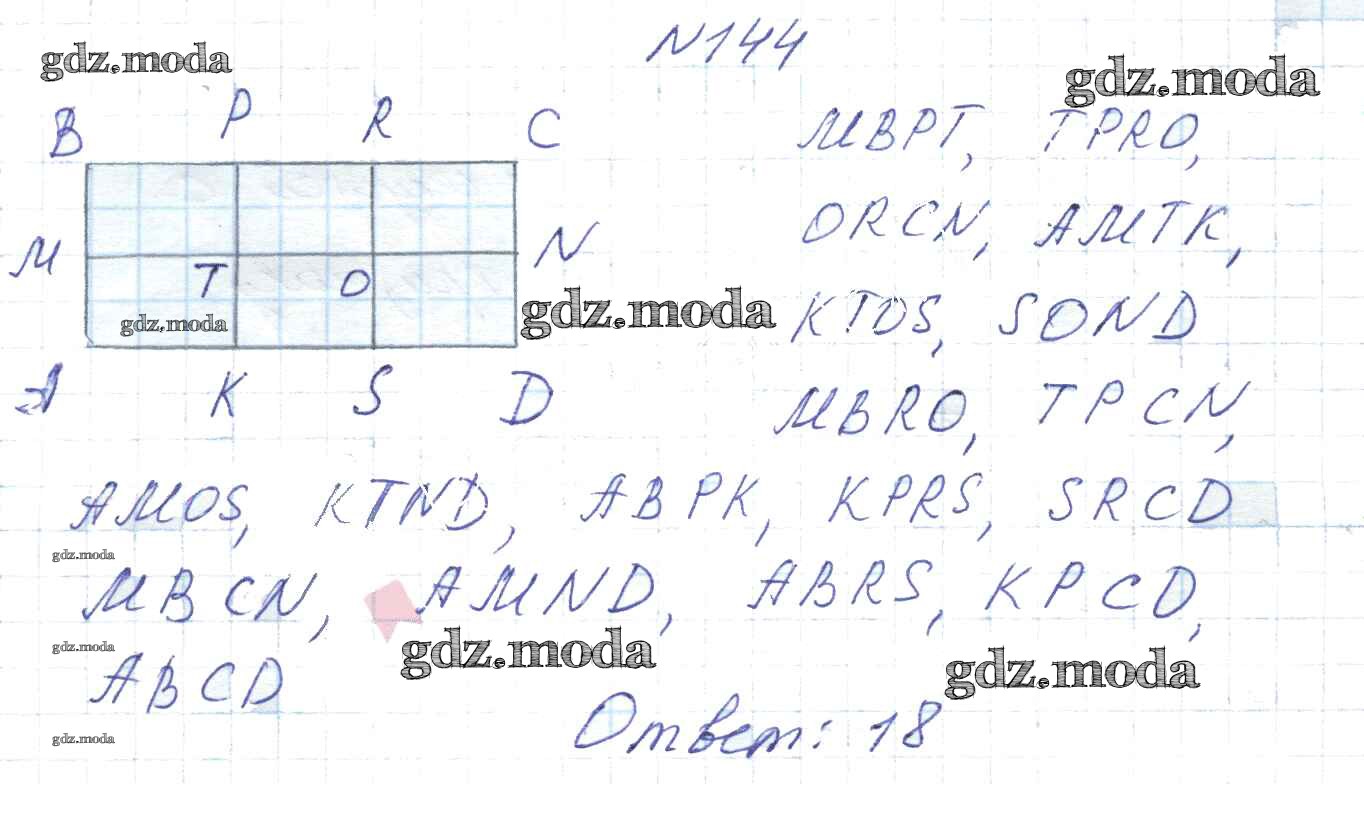 N144
gdz.moda
gdz.moda
B P R C
MBPT, TPRO,
ORCN, AMTK,
M N
T O
gdz.moda
gdz.moda
KTOS, SOND
A K S D
MBRO, TPCN,
AMOS, KTND, ABPK, KPRS, SRCD
gdz.moda
MBCN, AMND, ABRS, KPCD,
gdz.moda
gdz.moda
gdz.moda
ABCD
Ответ: 18
gdz.moda